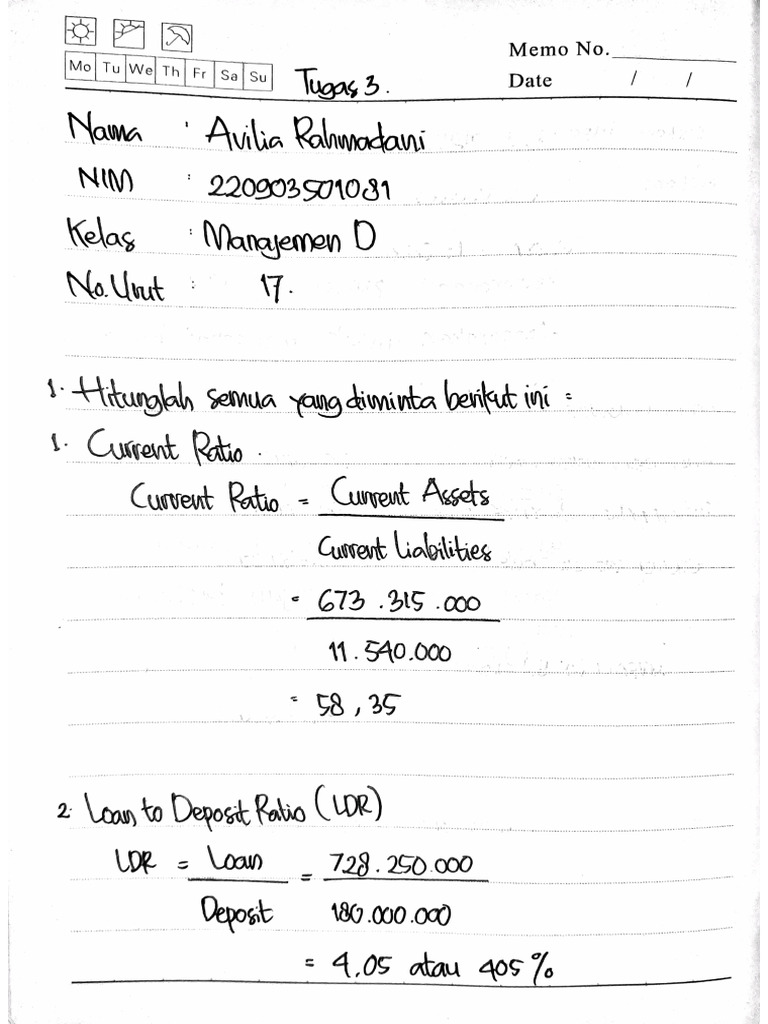 Memo No.
Mo Tu We Th Fr Sa Su
Date / /
Tugas 3.
Nama : Avilia Rahmadani
NIM : 220903501031
Kelas : Manajemen D
No. Urut : 17.
1. Hitunglah semua yang diminta berikut ini :
1. Current Ratio.
Current Ratio = Current Assets
Current Liabilities
= 673.315.000
11.540.000
= 58,35
2. Loan to Deposit Ratio (LDR)
LDR = Loan = 728.250.000
Deposit 180.000.000
= 4,05 atau 405%